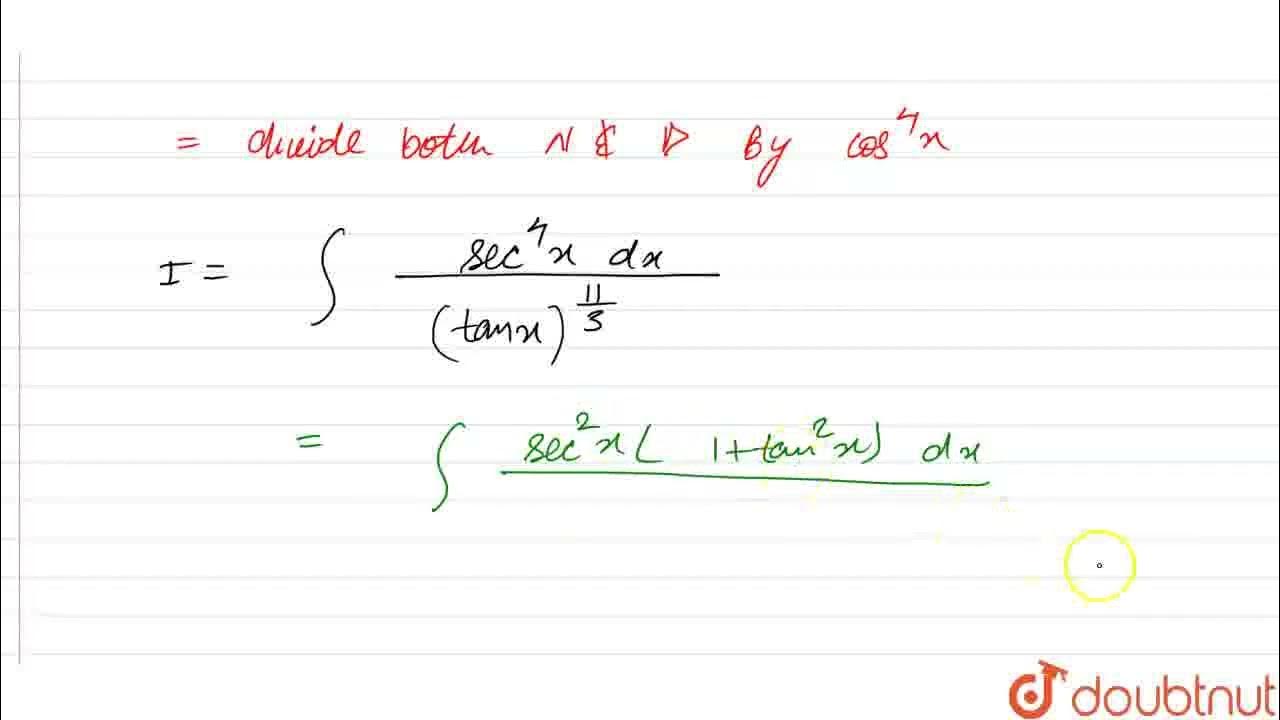 = divide both N & D By cos⁴x
I = ∫ sec⁴x dx / (tanx)^(11/3)
= ∫ sec²x( 1+tan²x) dx
doubtnut